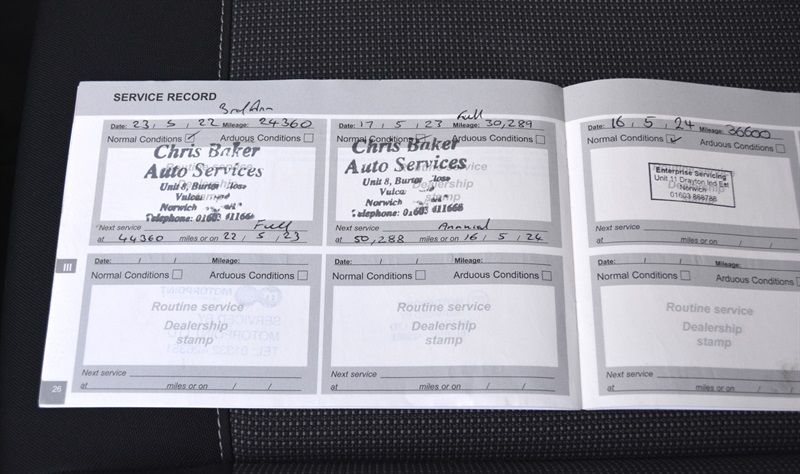 SERVICE RECORD
Date: 23 , 5 , 22 Mileage: 24360
Normal Conditions Arduous Conditions
Chris Baker
Auto Services
Unit 8,
Norwich
Telephone: 01603 411666
Next service Full
at 44360 miles or on 22 / 5 / 23
Full
Date: 17 , 5 , 23 Mileage: 30,289
Normal Conditions Arduous Conditions
Chris Baker
Auto Services
Dealership
Unit 8,
Norwich
Telephone: 01603 411666
Next service Annual
at 50,288 miles or on 16 / 5 / 24
Date: 16 , 5 , 24 Mileage: 36600
Normal Conditions Arduous Conditions
Enterprise Servicing
Unit 11 Drayton Ind Est
Norwich
01603 868788
Next service
at miles or on / /
III
Date: / / Mileage:
Normal Conditions Arduous Conditions
Routine service
Dealership
stamp
Next service
at miles or on / /
Date: / / Mileage:
Normal Conditions Arduous Conditions
Routine service
Dealership
stamp
Next service
at miles or on / /
Date: / / Mileage:
Normal Conditions Arduous Conditions
Routine service
Dealership
stamp
Next service
at miles or on / /
26